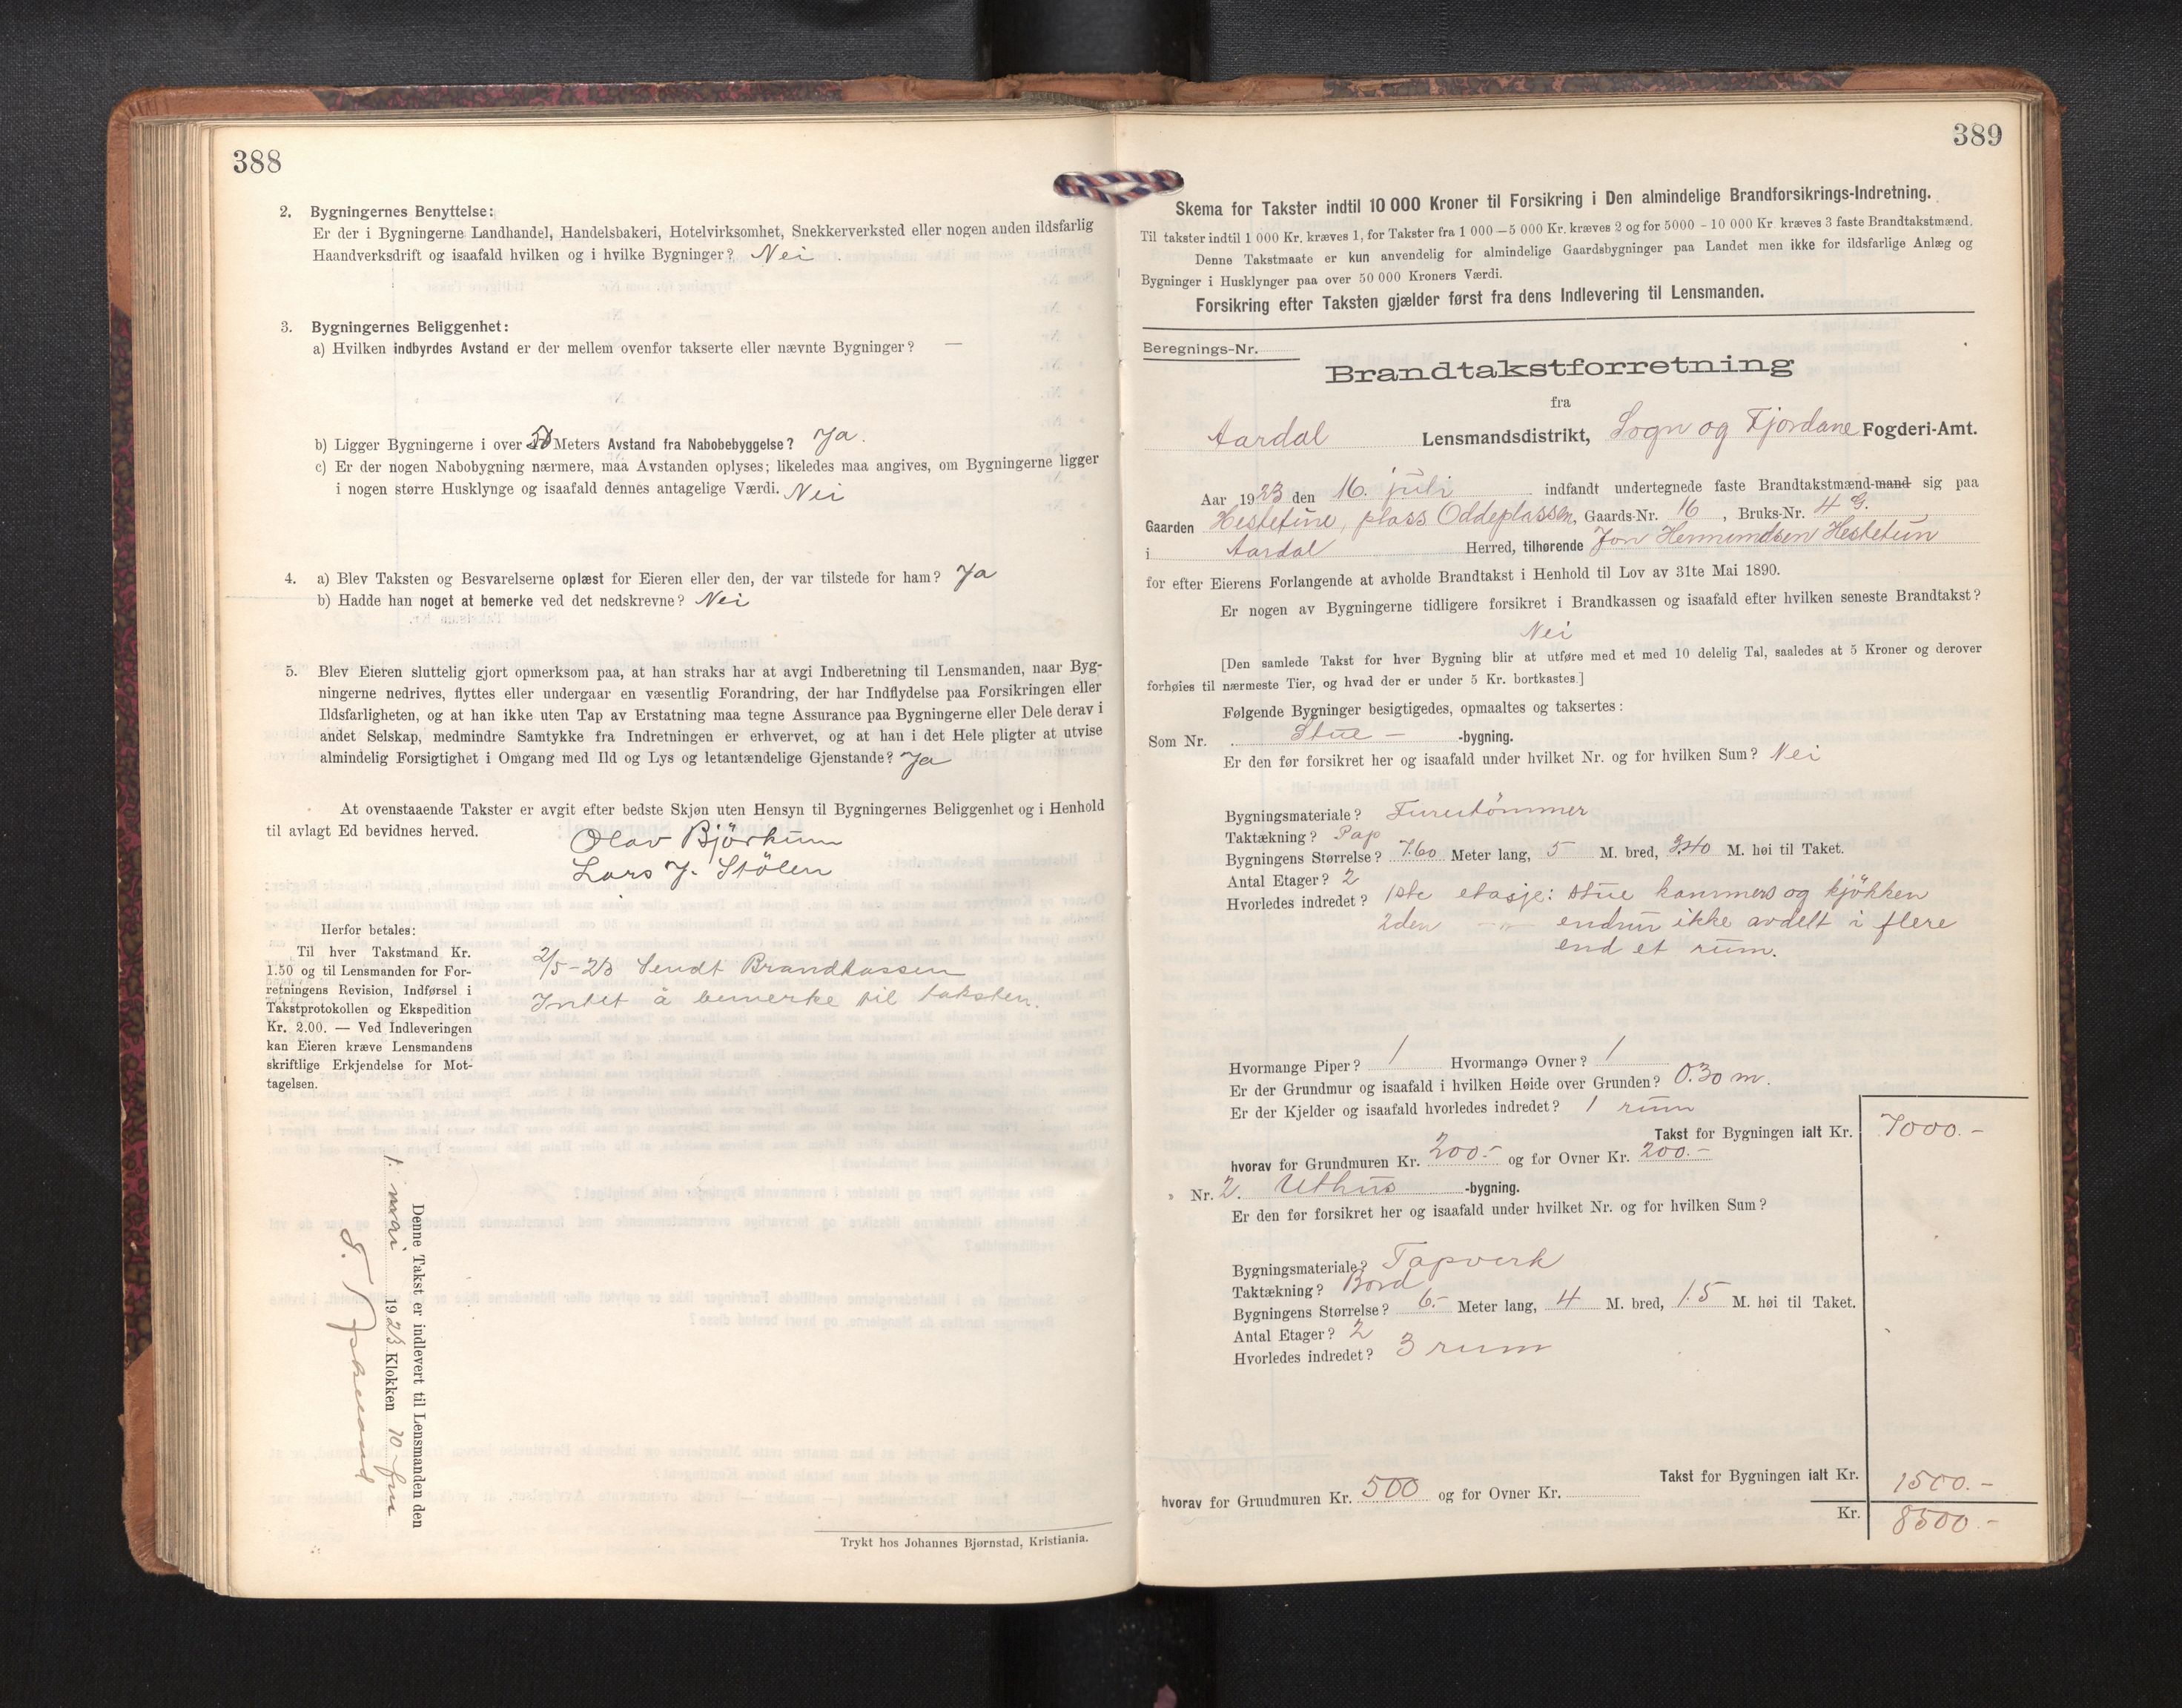 388
2. Bygningernes Benyttelse:
Er der i Bygningerne Landhandel, Handelsbakeri, Hotelvirksomhet, Snekkerverksted eller nogen anden ildsfarlig
Haandverksdrift og isaafald hvilken og i hvilke Bygninger? Nei
3. Bygningernes Beliggenhet:
a) Hvilken indbyrdes Avstand er der mellem ovenfor takserte eller nævnte Bygninger? —
b) Ligger Bygningerne i over 50 Meters Avstand fra Nabobebyggelse? Ja.
c) Er der nogen Nabobygning nærmere, maa Avstanden oplyses; likeledes maa angives, om Bygningerne ligger
i nogen større Husklynge og isaafald dennes antagelige Værdi. Nei
4. a) Blev Taksten og Besvarelserne oplæst for Eieren eller den, der var tilstede for ham? Ja
b) Hadde han noget at bemerke ved det nedskrevne? Nei
5. Blev Eieren sluttelig gjort opmerksom paa, at han straks har at avgi Indberetning til Lensmanden, naar Byg-
ningerne nedrives, flyttes eller undergaar en væsentlig Forandring, der har Indflydelse paa Forsikringen eller
Ildsfarligheten, og at han ikke uten Tap av Erstatning maa tegne Assurance paa Bygningerne eller Dele derav i
andet Selskap, medmindre Samtykke fra Indretningen er erhvervet, og at han i det Hele pligter at utvise
almindelig Forsigtighet i Omgang med Ild og Lys og letantændelige Gjenstande? Ja
At ovenstaaende Takster er avgit efter bedste Skjøn uten Hensyn til Bygningernes Beliggenhet og i Henhold
til avlagt Ed bevidnes herved.
Olav Bjørkum
Lars J. Stölen
Herfor betales:
Til hver Takstmand Kr.
1.50 og til Lensmanden for For-
retningens Revision, Indførsel i
Takstprotokollen og Ekspedition
Kr. 2.00. — Ved Indleveringen
kan Eieren kræve Lensmandens
skriftlige Erkjendelse for Mot-
tagelsen.
2/5-23 Sendt Brandkassen
Intet å bemerke til taksten.
Denne Takst er indlevert til Lensmanden den
1. mai 1923 Klokken 10 fm
Trykt hos Johannes Bjørnstad, Kristiania.
389
Skema for Takster indtil 10 000 Kroner til Forsikring i Den almindelige Brandforsikrings-Indretning.
Til takster indtil 1 000 Kr. kræves 1, for Takster fra 1 000 — 5 000 Kr. kræves 2 og for 5000 - 10 000 Kr kræves 3 faste Brandtakstmænd.
Denne Takstmaate er kun anvendelig for almindelige Gaardsbygninger paa Landet men ikke for ildsfarlige Anlæg og
Bygninger i Husklynger paa over 50 000 Kroners Værdi.
Forsikring efter Taksten gjælder først fra dens Indlevering til Lensmanden.
Beregnings-Nr.
Brandtakstforretning
fra
Aardal Lensmandsdistrikt, Sogn og Fjordane Fogderi-Amt.
Aar 1923 den 16. juli indfandt undertegnede faste Brandtakstmænd-mand sig paa
Gaarden Hestetune, plass Oddeplassen, Gaards-Nr. 16, Bruks-Nr. 4 G.
i Aardal Herred, tilhørende Jon Hermundsen Hestetun
for efter Eierens Forlangende at avholde Brandtakst i Henhold til Lov av 31te Mai 1890.
Er nogen av Bygningerne tidligere forsikret i Brandkassen og isaafald efter hvilken seneste Brandtakst?
Nei
[Den samlede Takst for hver Bygning blir at utføre med et med 10 delelig Tal, saaledes at 5 Kroner og derover
forhøies til nærmeste Tier, og hvad der er under 5 Kr. bortkastes.]
Følgende Bygninger besigtigedes, opmaaltes og taksertes:
Som Nr. Stue - -bygning.
Er den før forsikret her og isaafald under hvilket Nr. og for hvilken Sum? Nei
Bygningsmateriale? Furutömmer
Taktækning? Pap
Bygningens Størrelse? 7.60 Meter lang, 5 M. bred, 3.40 M. høi til Taket.
Antal Etager? 2
Hvorledes indredet? 1ste etasje: stue kammers og kjökken
2den -"- endnu ikke avdelt i flere
end et rum.
Hvormange Piper? 1 Hvormange Ovner? 1
Er der Grundmur og isaafald i hvilken Høide over Grunden? 0.30 m.
Er der Kjelder og isaafald hvorledes indredet? 1 rum
Takst for Bygningen ialt Kr. 7000.-
hvorav for Grundmuren Kr. 200.- og for Ovner Kr. 200.-
» Nr. 2. Uthus -bygning.
Er den før forsikret her og isaafald under hvilket Nr. og for hvilken Sum?
Bygningsmateriale? Tapverk
Taktækning? Bord
Bygningens Størrelse? 6.- Meter lang, 4 M. bred, 1.5 M. høi til Taket.
Antal Etager? 2
Hvorledes indredet? 3 rum
Takst for Bygningen ialt Kr. 1500.-
hvorav for Grundmuren Kr. 500 og for Ovner Kr.
Kr. 8500.-